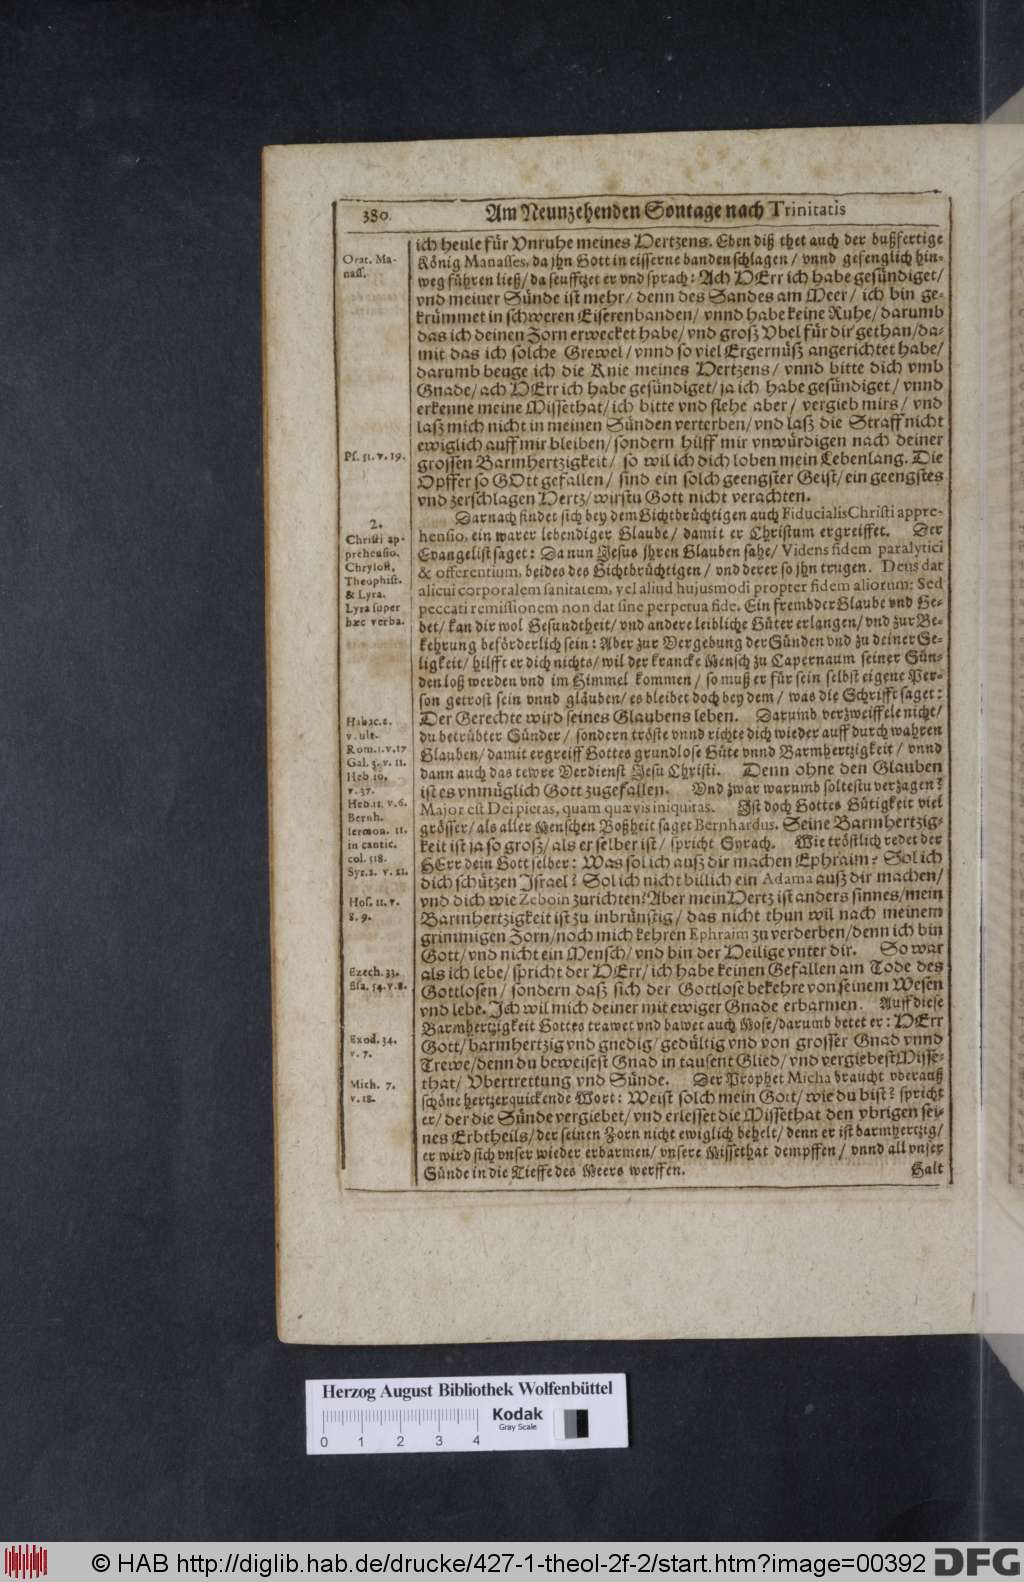 380.
Am Neunzehenden Sontage nach Trinitatis
ich heule für Vnruhe meines Hertzens. Eben diß thet auch der bußfertige
König Manasses, da jhn Gott in eisserne banden schlagen / vnnd gefenglich hin-
weg führen ließ / da seufftzet er vnd sprach: Ach HErr ich habe gesündiget /
vnd meiner Sünde ist mehr / denn des Sandes am Meer / ich bin ge-
krümmet in schweren Eiserenbanden / vnnd habe keine Ruhe / darumb
das ich deinen Zorn erwecket habe / vnd groß Vbel für dir gethan / da-
mit das ich solche Grewel / vnnd so viel Ergernüß angerichtet habe /
darumb beuge ich die Knie meines Hertzens / vnnd bitte dich vmb
Gnade / ach HErr ich habe gesündiget / ja ich habe gesündiget / vnnd
erkenne meine Missethat / ich bitte vnd flehe aber / vergieb mirs / vnd
laß mich nicht in meinen Sünden verterben / vnd laß die Straff nicht
ewiglich auff mir bleiben / sondern hilff mir vnwürdigen nach deiner
grossen Barmhertzigkeit / so wil ich dich loben mein Lebenlang. Die
Opffer so GOtt gefallen / sind ein solch geengster Geist / ein geengstes
vnd zerschlagen Hertz / wirstu Gott nicht verachten.
Darnach findet sich bey dem Gichtbrüchtigen auch Fiducialis Christi appre-
hensio, ein warer lebendiger Glaube / damit er Christum ergreiffet. Der
Evangelist saget: Da nun Jesus jhren Glauben sahe / Videns fidem paralytici
& offerentium, beides des Gichtbrüchtigen / vnd derer so jhn trugen. Deus dat
alicui corporalem sanitatem, vel aliud hujusmodi propter fidem aliorum: Sed
peccati remissionem non dat sine perpetua fide. Ein frembder Glaube vnd Ge-
bet / kan dir wol Gesundtheit / vnd andere leibliche Güter erlangen / vnd zur Be-
kehrung beförderlich sein: Aber zur Vergebung der Sünden vnd zu deiner Se-
ligkeit / hilfft er dich nichts / wil der krancke Mensch zu Capernaum seiner Sün-
den loß werden vnd im Himmel kommen / so muß er für sein selbst eigene Per-
son getrost sein vnnd gläuben / es bleibet doch bey dem / was die Schrifft saget:
Der Gerechte wird seines Glaubens leben. Darumb verzweiffele nicht /
du betrübter Sünder / sondern tröste vnnd richte dich wieder auff durch wahren
Glauben / damit ergreiff Gottes grundlose Güte vnnd Barmhertzigkeit / vnnd
dann auch das tewre Verdienst Jesu Christi. Denn ohne den Glauben
ist es vnmüglich Gott zugefallen. Vnd zwar warumb soltestu verzagen?
Major est Dei pietas, quam quævis iniquitas. Ist doch Gottes Gütigkeit viel
grösser / als aller Menschen Boßheit saget Bernhardus. Seine Barmhertzig-
keit ist ja so groß / als er selber ist / spricht Syrach. Wie tröstlich redet der
HErr dein Gott selber: Was sol ich auß dir machen Ephraim? Sol ich
dich schützen Israel? Sol ich nicht billich ein Adama auß dir machen /
vnd dich wie Zeboin zurichten? Aber mein Hertz ist anders sinnes / mein
Barmhertzigkeit ist zu inbrünstig / das nicht thun wil nach meinem
grimmigen Zorn / noch mich kehren Ephraim zu verderben / denn ich bin
Gott / vnd nicht ein Mensch / vnd bin der Heilige vnter dir. So war
als ich lebe / spricht der HErr / ich habe keinen Gefallen am Tode des
Gottlosen / sondern daß sich der Gottlose bekehre von seinem Wesen
vnd lebe. Ich wil mich deiner mit ewiger Gnade erbarmen. Auff diese
Barmhertzigkeit Gottes trawet vnd bawet auch Mose / darumb betet er: HErr
Gott / barmhertzig vnd gnedig / gedültig vnd von grosser Gnad vnnd
Trewe / denn du beweisest Gnad in tausent Glied / vnd vergiebest Misse-
that / Vbertrettung vnd Sünde. Der Prophet Micha braucht vberauß
schöne hertzerquickende Wort: Weist solch mein Gott / wie du bist? spricht
er / der die Sünde vergiebet / vnd erlesset die Missethat den vbrigen sei-
nes Erbtheils / der seinen Zorn nicht ewiglich behelt / denn er ist barmhertzig /
er wird sich vnser wieder erbarmen / vnsere Missethat dempffen / vnnd all vnser
Sünde in die Tieffe des Meers werffen.
Halt
Orat. Ma-
nass.
Ps. 51. v. 19.
2.
Christi ap-
prehensio.
Chrysost,
Theophist.
& Lyra.
Lyra super
hæc verba.
Habac. 2.
v. ult.
Rom. 1. v. 17
Gal. 3. v. 11.
Heb 10.
v. 37.
Heb. 11. v. 6.
Bernh.
sermon. 11.
in cantic.
col. 518.
Syr. 2. v. 21.
Hos. 11. v.
8. 9.
Ezech. 33.
Esa. 54. v. 8.
Exod. 34.
v. 7.
Mich. 7.
v. 18.
Herzog August Bibliothek Wolfenbüttel
Kodak
Gray Scale
0 1 2 3 4
© HAB http://diglib.hab.de/drucke/427-1-theol-2f-2/start.htm?image=00392
DFG